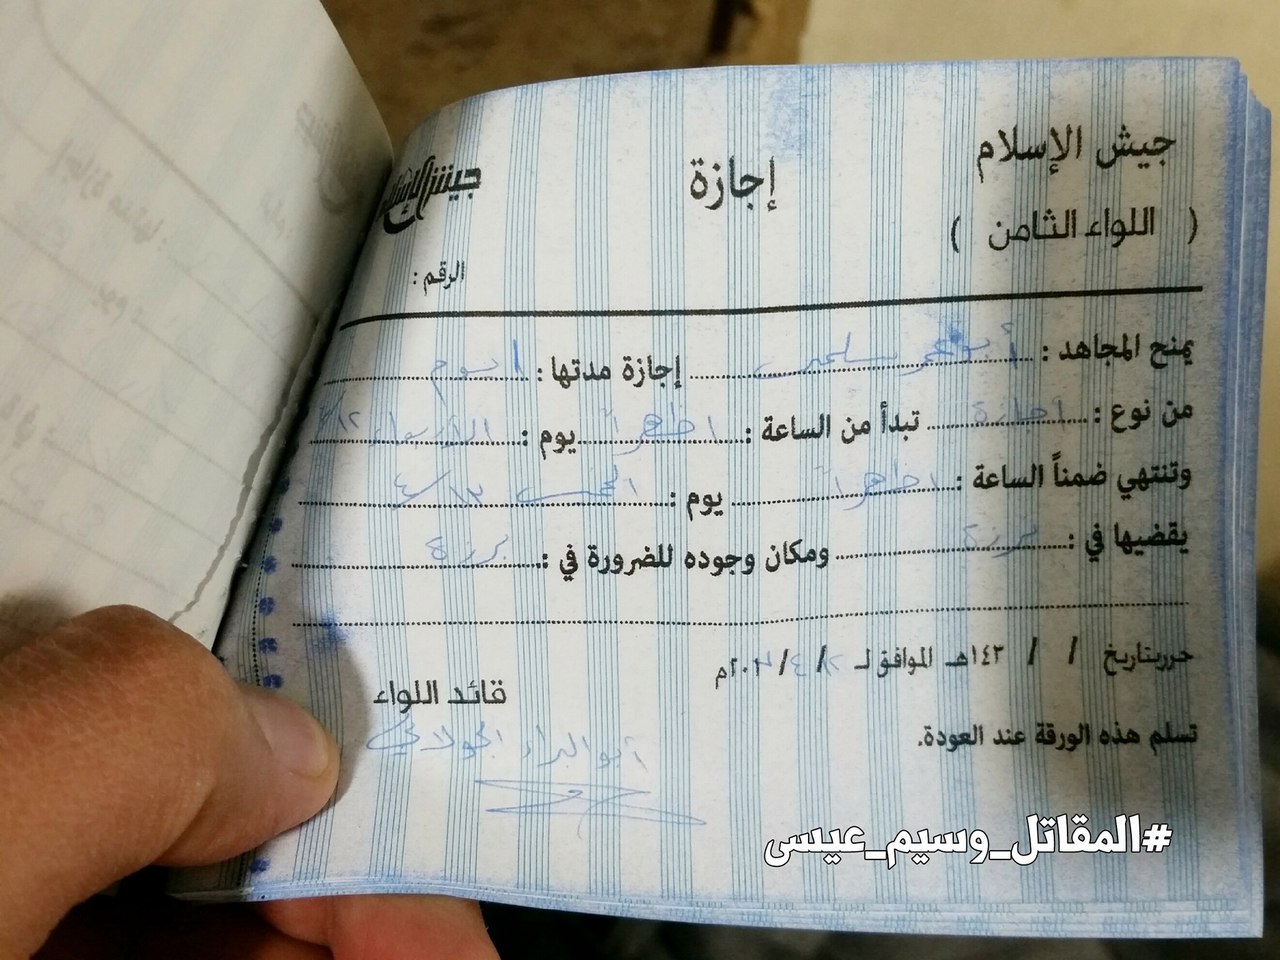 جيش الإسلام
إجازة
جيش الإسلام
( اللواء الثامن )
الرقم :
يمنح المجاهد : أبو عمر إجازة مدتها : ١ يوم
من نوع : اجازة تبدأ من الساعة : ١ ظهراً يوم : الأربعاء ١٢/٤
وتنتهي ضمناً الساعة : ١ ظهراً يوم : الخميس ١٣/٤
يقضيها في : برزة ومكان وجوده للضرورة في : برزة
حرربتاريخ / / ١٤٣هـ الموافق لـ ١٢ / ٤ / ٢٠١م
قائد اللواء
أبو البراء الجولاني
تسلم هذه الورقة عند العودة.
#المقاتل_وسيم_عيسى